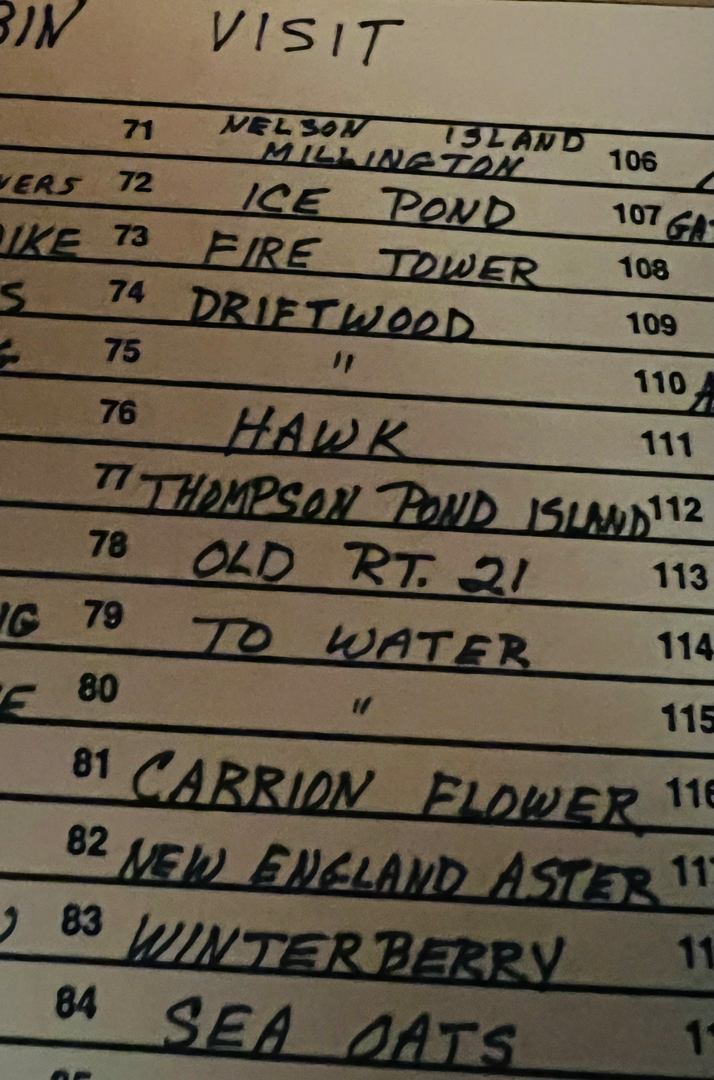 VISIT
71 NELSON ISLAND 106
MILLINGTON
72 ICE POND 107
73 FIRE TOWER 108
74 DRIFTWOOD 109
75 " 110
76 HAWK 111
77 THOMPSON POND ISLAND 112
78 OLD RT. 21 113
79 TO WATER 114
80 " 115
81 CARRION FLOWER 116
82 NEW ENGLAND ASTER
83 WINTERBERRY
84 SEA OATS